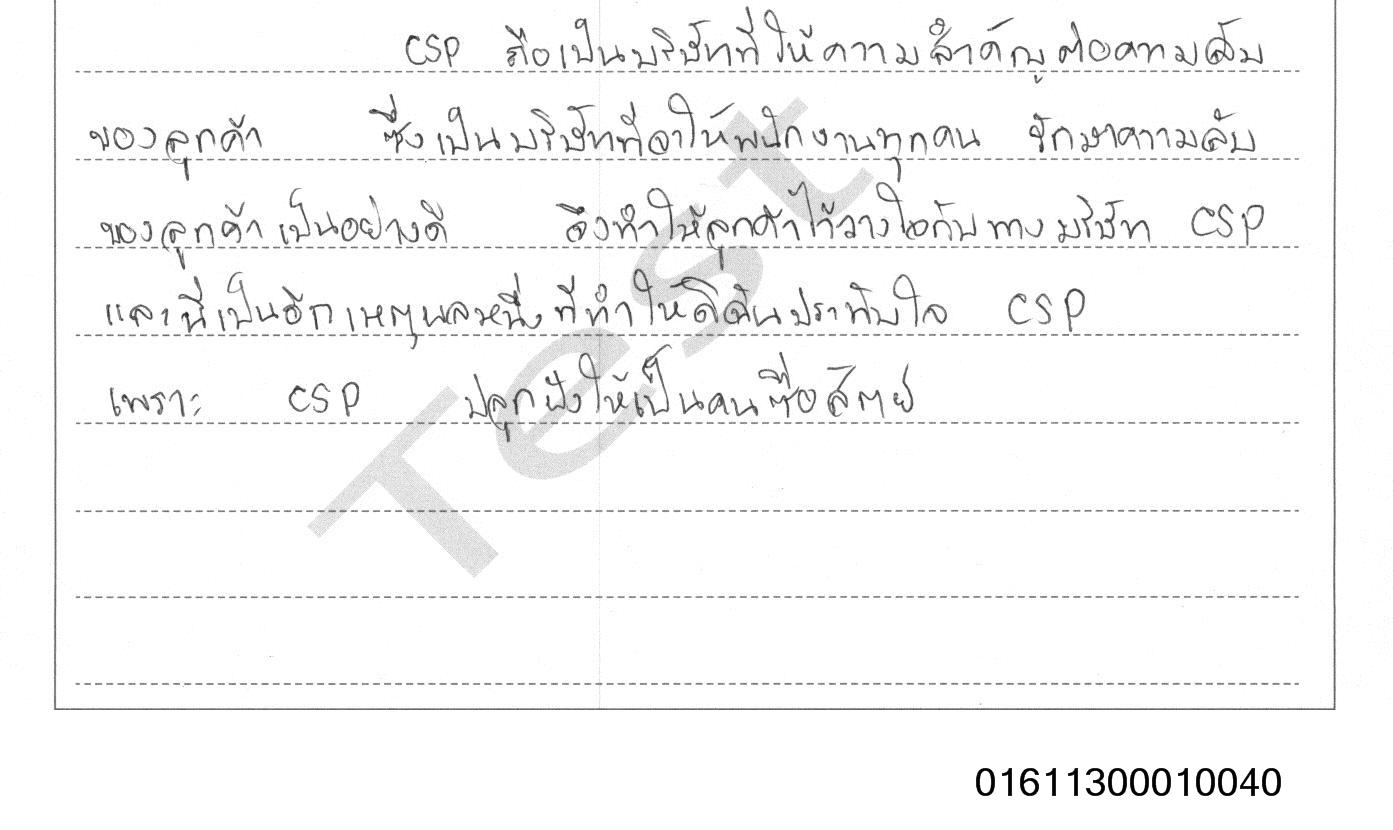 CSP ถือเป็นบริษัทที่ให้ความสำคัญต่อความลับ
ของลูกค้า ซึ่งเป็นบริษัทที่จะให้พนักงานทุกคน รักษาความลับ
ของลูกค้าเป็นอย่างดี จึงทำให้ลูกค้าไว้วางใจกับทางบริษัท CSP
และนี่เป็นอีกเหตุผลหนึ่งที่ทำให้ดิฉันประทับใจ CSP
เพราะ CSP ปลูกฝังให้เป็นคนซื่อสัตย์
Test
01611300010040